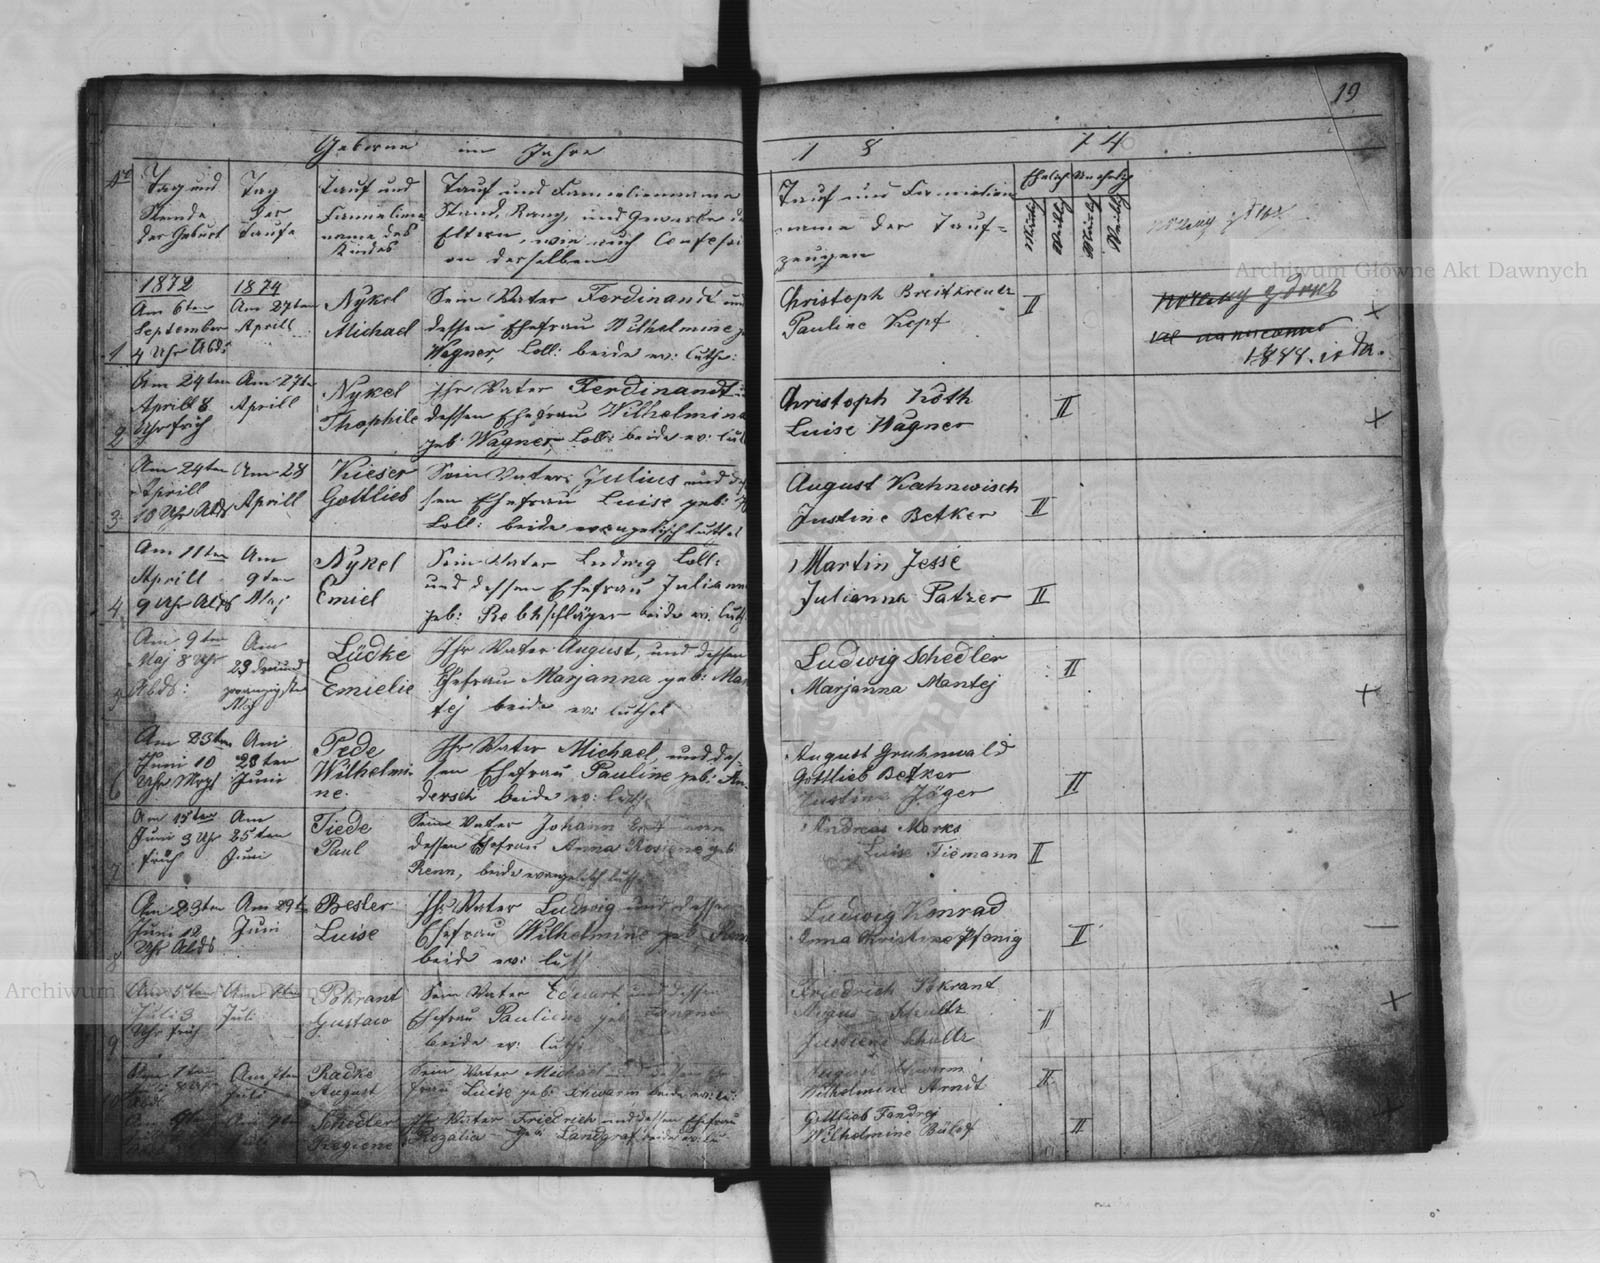 19
Geborne im Jahre
1 8 7 4
No
Tag und
Stunde
der Geburt
Tag
der
Taufe
Tauf und
Familien
name des
Kindes
Tauf und Familienname
Stand, Rang, und Gewerbe der
Eltern, wie auch Confessi
on derselben
Tauf und Familien
name der Tauf=
zeugen
Ehelich Unehelich
Männlich
Weiblich
Männlich
Weiblich
1
1872
Am 6ten
September
4 Uhr Abds
1874
Am 27ten
Aprill
Nykel
Michael
Sein Vater Ferdinandt und
dessen Ehefrau Wilhelmine g
Wagner, Coll: beide ev: luth:
Christoph Breitkreutz
Pauline Kopf
II
1888
2
Am 24ten
Aprill 8
Uhr früh
Am 27te
Aprill
Nykel
Thophile
Ihr Vater Ferdinandt u
dessen Ehefrau Wilhelmine
geb: Wagner, Coll: beide ev: lut
Christoph Koth
Luise Wagner
II
3
Am 24ten
Aprill
10 Uhr Abds
Am 28
Aprill
Kieser
Gottlieb
Sein Vater, Julius und des
sen Ehefrau Luise geb:
Coll: beide evangelisch luthe
August Kahnwisch
Justine Betker
II
4
Am 11ten
Aprill
9 Uhr Abds
Am
9ten
Maj
Nykel
Emiel
Sein Vater Ludwig Coll:
und dessen Ehefrau Julianna
geb: Rebhschläger beide ev: luth
Martin Jesse
Julianna Patzer
II
5
Am 9ten
Maj 8 Uhr
Abds:
Am
23 dreiund
zwanzigsten
Maj
Lüdke
Emielie
Ihr Vater August, und dessen
Ehefrau Marjanna geb: Man
tej beide ev: luther
Ludwig Schedler
Marjanna Mantej
II
6
Am 23ten
Juni 10
Uhr Mrgs
Am
23ten
Juni
Pede
Wilhelmi-
ne.
Ihr Vater Michael, und des-
sen Ehefrau, Pauline geb: An
dersch beide ev: luth
August Gruhnwald
Gottlieb Betker
Justine Jäger
II
7
Am 15ten
Juni 3 Uhr
früh
Am
25ten
Juni
Tiede
Paul
Sein Vater Johann
dessen Ehefrau Anna Rosiene geb
Renn, beide evangelisch luth
Andreas Marks
Luise Tiemann
II
8
Am 23ten
Juni 12
Uhr Abds
Am 29te
Juni
Besler
Luise
Ihr Vater Ludwig und dessen
Ehefrau Wilhelmine geb:
beide ev: luth
Ludwig Konrad
Anna Christine Pfenig
II
9
Am 5ten
Juli 3
Uhr früh
Juli
Pokrant
Gustaw
Sein Vater Eduart und dessen
Ehefrau Pauliene geb:
beide ev: luth:
Friedrich Pokrant
Schultz
Justiene Schultz
II
Am 7ten
Juli
Radke
August
Sein Vater Michael und dessen Ehe
frau Luise geb: Schwarm beide ev: lu:
August Schwarm
Wilhelmine Arndt
II
Schedler
Regiene
Ihr Vater Friedrich und dessen Ehefrau
Rozalia geb: Landgraf beide ev: lu
Gottlieb Fandrej
Wilhelmine Bülof
II
Archiwum Główne Akt Dawnych
Archiwum Główne Akt Dawnych